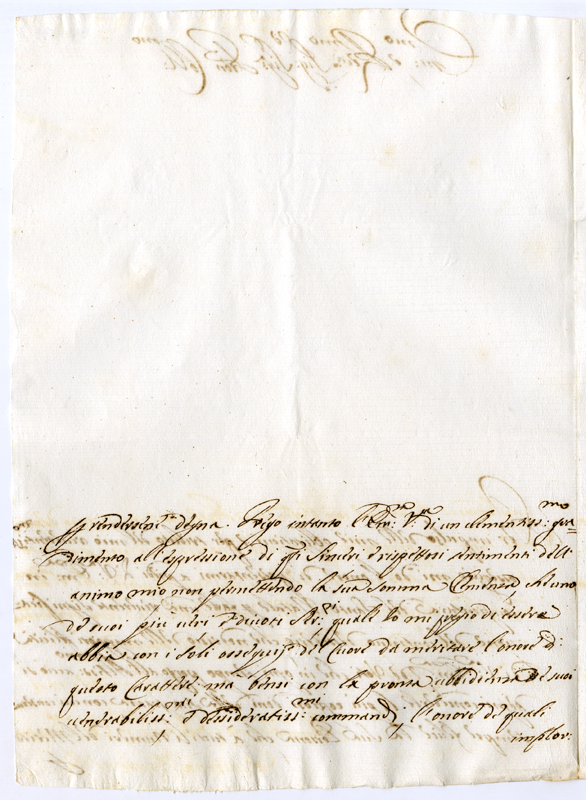 prendersene degna. Priego intanto l'Em:za V:ra di un clementiss:mo gra=
dimento all'espressione di qsti sinceri e rispettosi sentimenti dell'
animo mio non permettendo la sua somma Clemenza che uno
de suoi più veri e divoti Ser:ri quale io mi pregio di essere
abbia con i soli ossequij di Cuore da meritare l'onore di
questo Carattere: mà bensi con la pronta ubbidienza de suoi
venerabiliss:mi e desideratiss:mi commandi, l'onore de quali
implor: